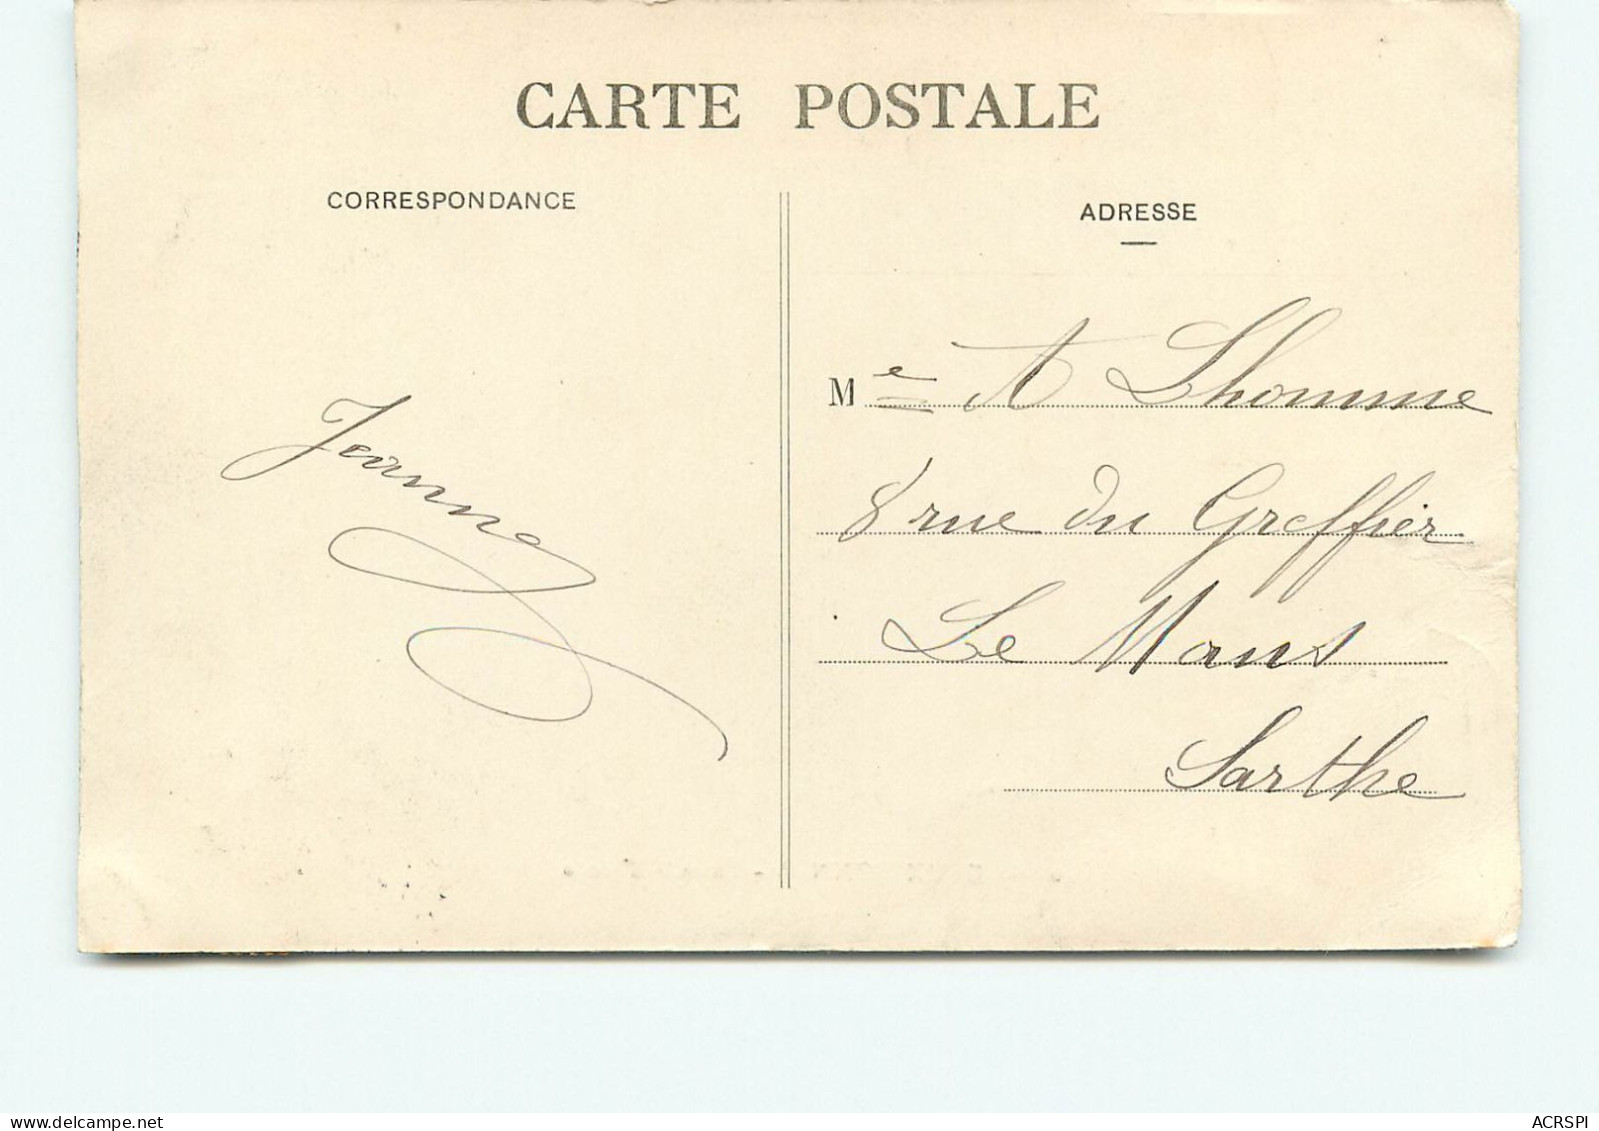 CARTE POSTALE
CORRESPONDANCE
ADRESSE
Jeanne
Me A Lhomme
8 rue du Greffier
Le Mans
Sarthe
www.delcampe.net
ACRSPI